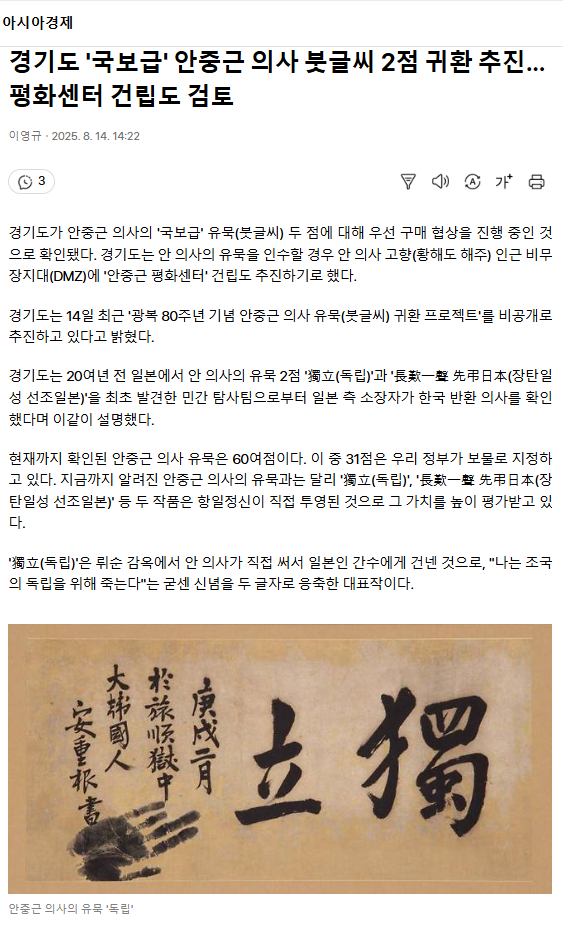 아시아경제
경기도 '국보급' 안중근 의사 붓글씨 2점 귀환 추진…
평화센터 건립도 검토
이영규 · 2025. 8. 14. 14:22
3
가+
경기도가 안중근 의사의 '국보급' 유묵(붓글씨) 두 점에 대해 우선 구매 협상을 진행 중인 것
으로 확인됐다. 경기도는 안 의사의 유묵을 인수할 경우 안 의사 고향(황해도 해주) 인근 비무
장지대(DMZ)에 '안중근 평화센터' 건립도 추진하기로 했다.
경기도는 14일 최근 '광복 80주년 기념 안중근 의사 유묵(붓글씨) 귀환 프로젝트'를 비공개로
추진하고 있다고 밝혔다.
경기도는 20여년 전 일본에서 안 의사의 유묵 2점 '獨立(독립)'과 '長歎一聲 先弔日本(장탄일
성 선조일본)'을 최초 발견한 민간 탐사팀으로부터 일본 측 소장자가 한국 반환 의사를 확인
했다며 이같이 설명했다.
현재까지 확인된 안중근 의사 유묵은 60여점이다. 이 중 31점은 우리 정부가 보물로 지정하
고 있다. 지금까지 알려진 안중근 의사의 유묵과는 달리 '獨立(독립)', '長歎一聲 先弔日本(장
탄일성 선조일본)' 등 두 작품은 항일정신이 직접 투영된 것으로 그 가치를 높이 평가받고 있
다.
'獨立(독립)'은 뤼순 감옥에서 안 의사가 직접 써서 일본인 간수에게 건넨 것으로, "나는 조국
의 독립을 위해 죽는다"는 굳센 신념을 두 글자로 응축한 대표작이다.
獨立
庚戌二月
於旅順獄中
大韓國人
安重根書
안중근 의사의 유묵 '독립'